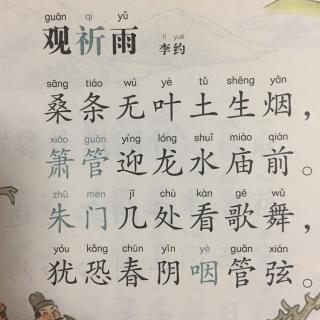 guān qí yǔ
观祈雨
lǐ yuē
李约
sāng tiáo wú yè tǔ shēng yān
桑条无叶土生烟，
xiāo guǎn yíng lóng shuǐ miào qián
箫管迎龙水庙前。
zhū mén jǐ chù kàn gē wǔ
朱门几处看歌舞，
yóu kǒng chūn yīn yè guǎn xián
犹恐春阴咽管弦。